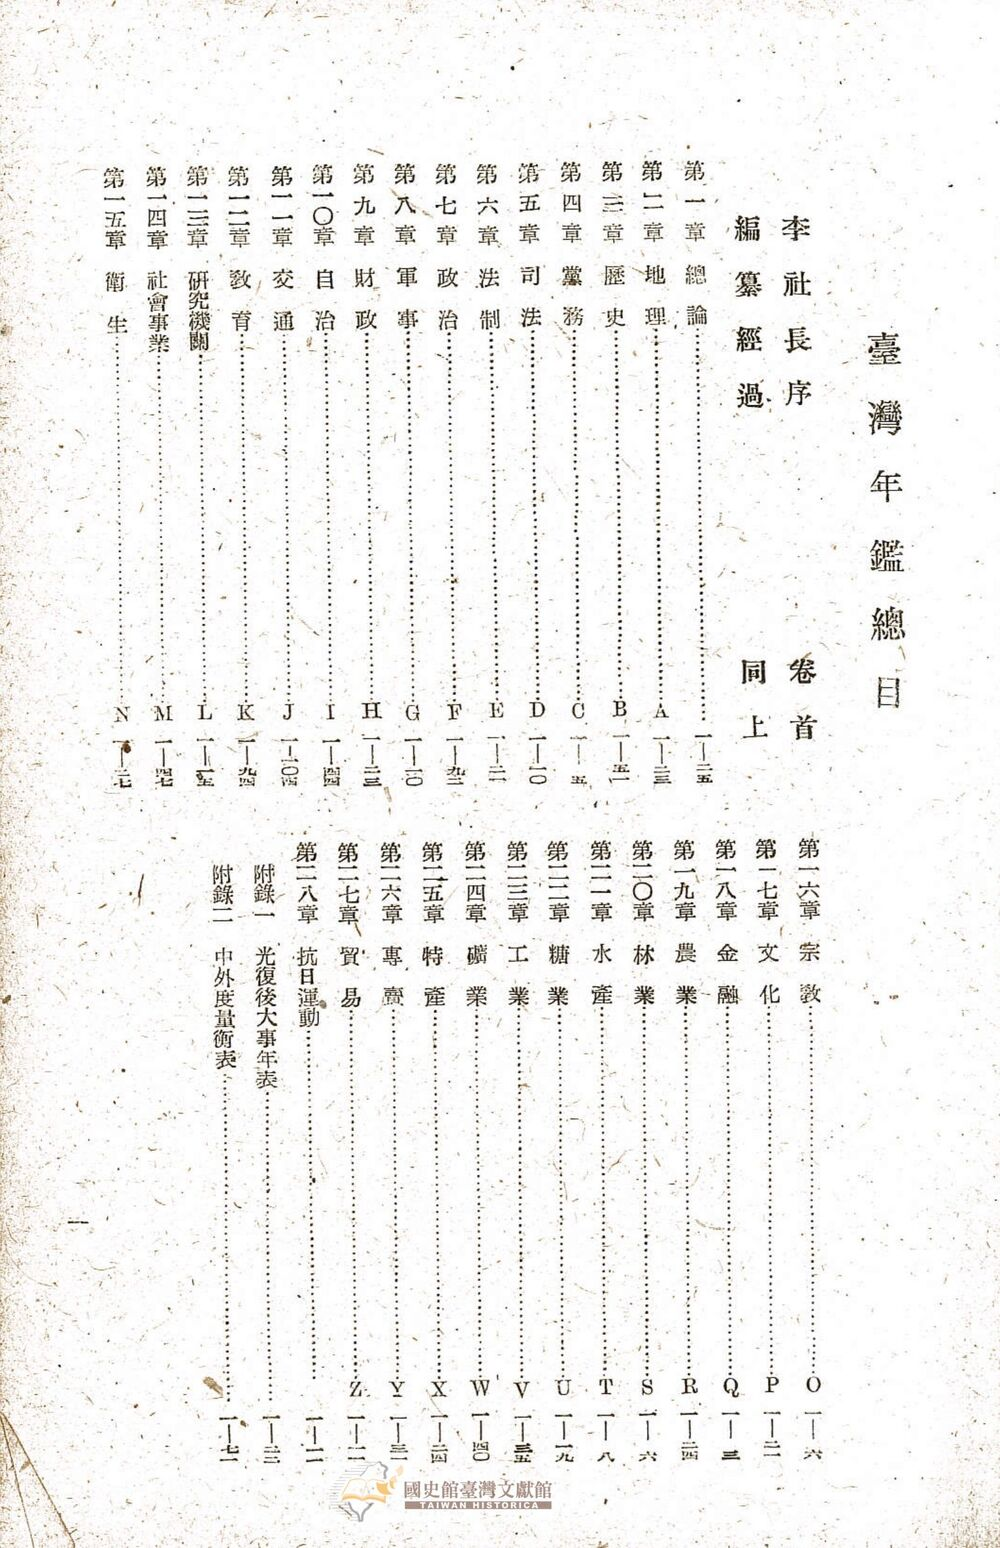 臺灣年鑑總目
李社長序 卷首
編纂經過 同上
第一章 總論 一—二五
第二章 地理 A 一—二三
第三章 歷史 B 一—五一
第四章 黨務 C 一—五
第五章 司法 D 一—一〇
第六章 法制 E 一—二一
第七章 政治 F 一—九二
第八章 軍事 G 一—一〇
第九章 財政 H 一—二三
第一〇章 自治 I 一—四四
第一一章 交通 J 一—一〇四
第一二章 教育 K 一—九四
第一三章 研究機關 L 一—一五
第一四章 社會事業 M 一—四七
第一五章 衛生 N 一—二七
第一六章 宗教 O 一—六
第一七章 文化 P 一—二二
第一八章 金融 Q 一—三
第一九章 農業 R 一—二四
第二〇章 林業 S 一—六
第二一章 水產 T 一—八
第二二章 糖業 U 一—一九
第二三章 工業 V 一—三五
第二四章 礦業 W 一—四〇
第二五章 特產 X 一—二四
第二六章 專賣 Y 一—三一
第二七章 貿易 Z 一—二一
第二八章 抗日運動 一—二一
附錄一 光復後大事年表 一—二三
附錄二 中外度量衡表 一—七一
一
國史館臺灣文獻館
TAIWAN HISTORICA